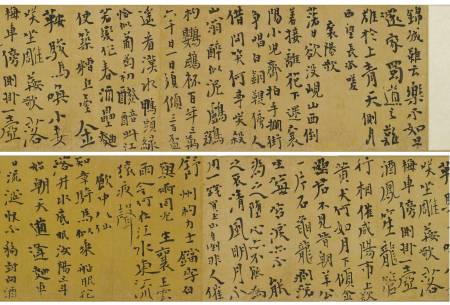 錦城雖云樂不如早
還家蜀道之難
難於上青天側身
西望長咨嗟
襄陽歌
落日欲没峴山西倒
著接離花下迷襄
陽小兒齊拍手攔街
爭唱白銅鞮傍人
借問笑何事笑殺
山翁醉似泥鸕鷀
杓鸚鵡杯百年三萬
六千日一日須傾三百盃
遥看漢水鴨頭緑
恰似葡萄初醱醅此江
若變作春酒壘麴
便築糟丘臺金
鞍駿馬喚小妾
笑坐雕鞍歌落
梅車傍側掛一壺
笑坐雕鞍歌落
梅車傍側掛一壺
酒鳳笙龍管
行相催咸陽市上歎
黄犬何如月下傾金
罍君不見晉朝羊公
一片石龜龍剥落
生莓苔淚亦不能
為之墮心亦不能為
之哀清風明月不
用一錢買玉山自倒非人推
舒州杓力士鐺李白
與爾同死生襄王雲
雨今何在江水東流
猿夜聲
知章騎馬似乘船眼花
落井水底眠汝陽三斗
始朝天道逢麴車口
流涎恨不移封向酒